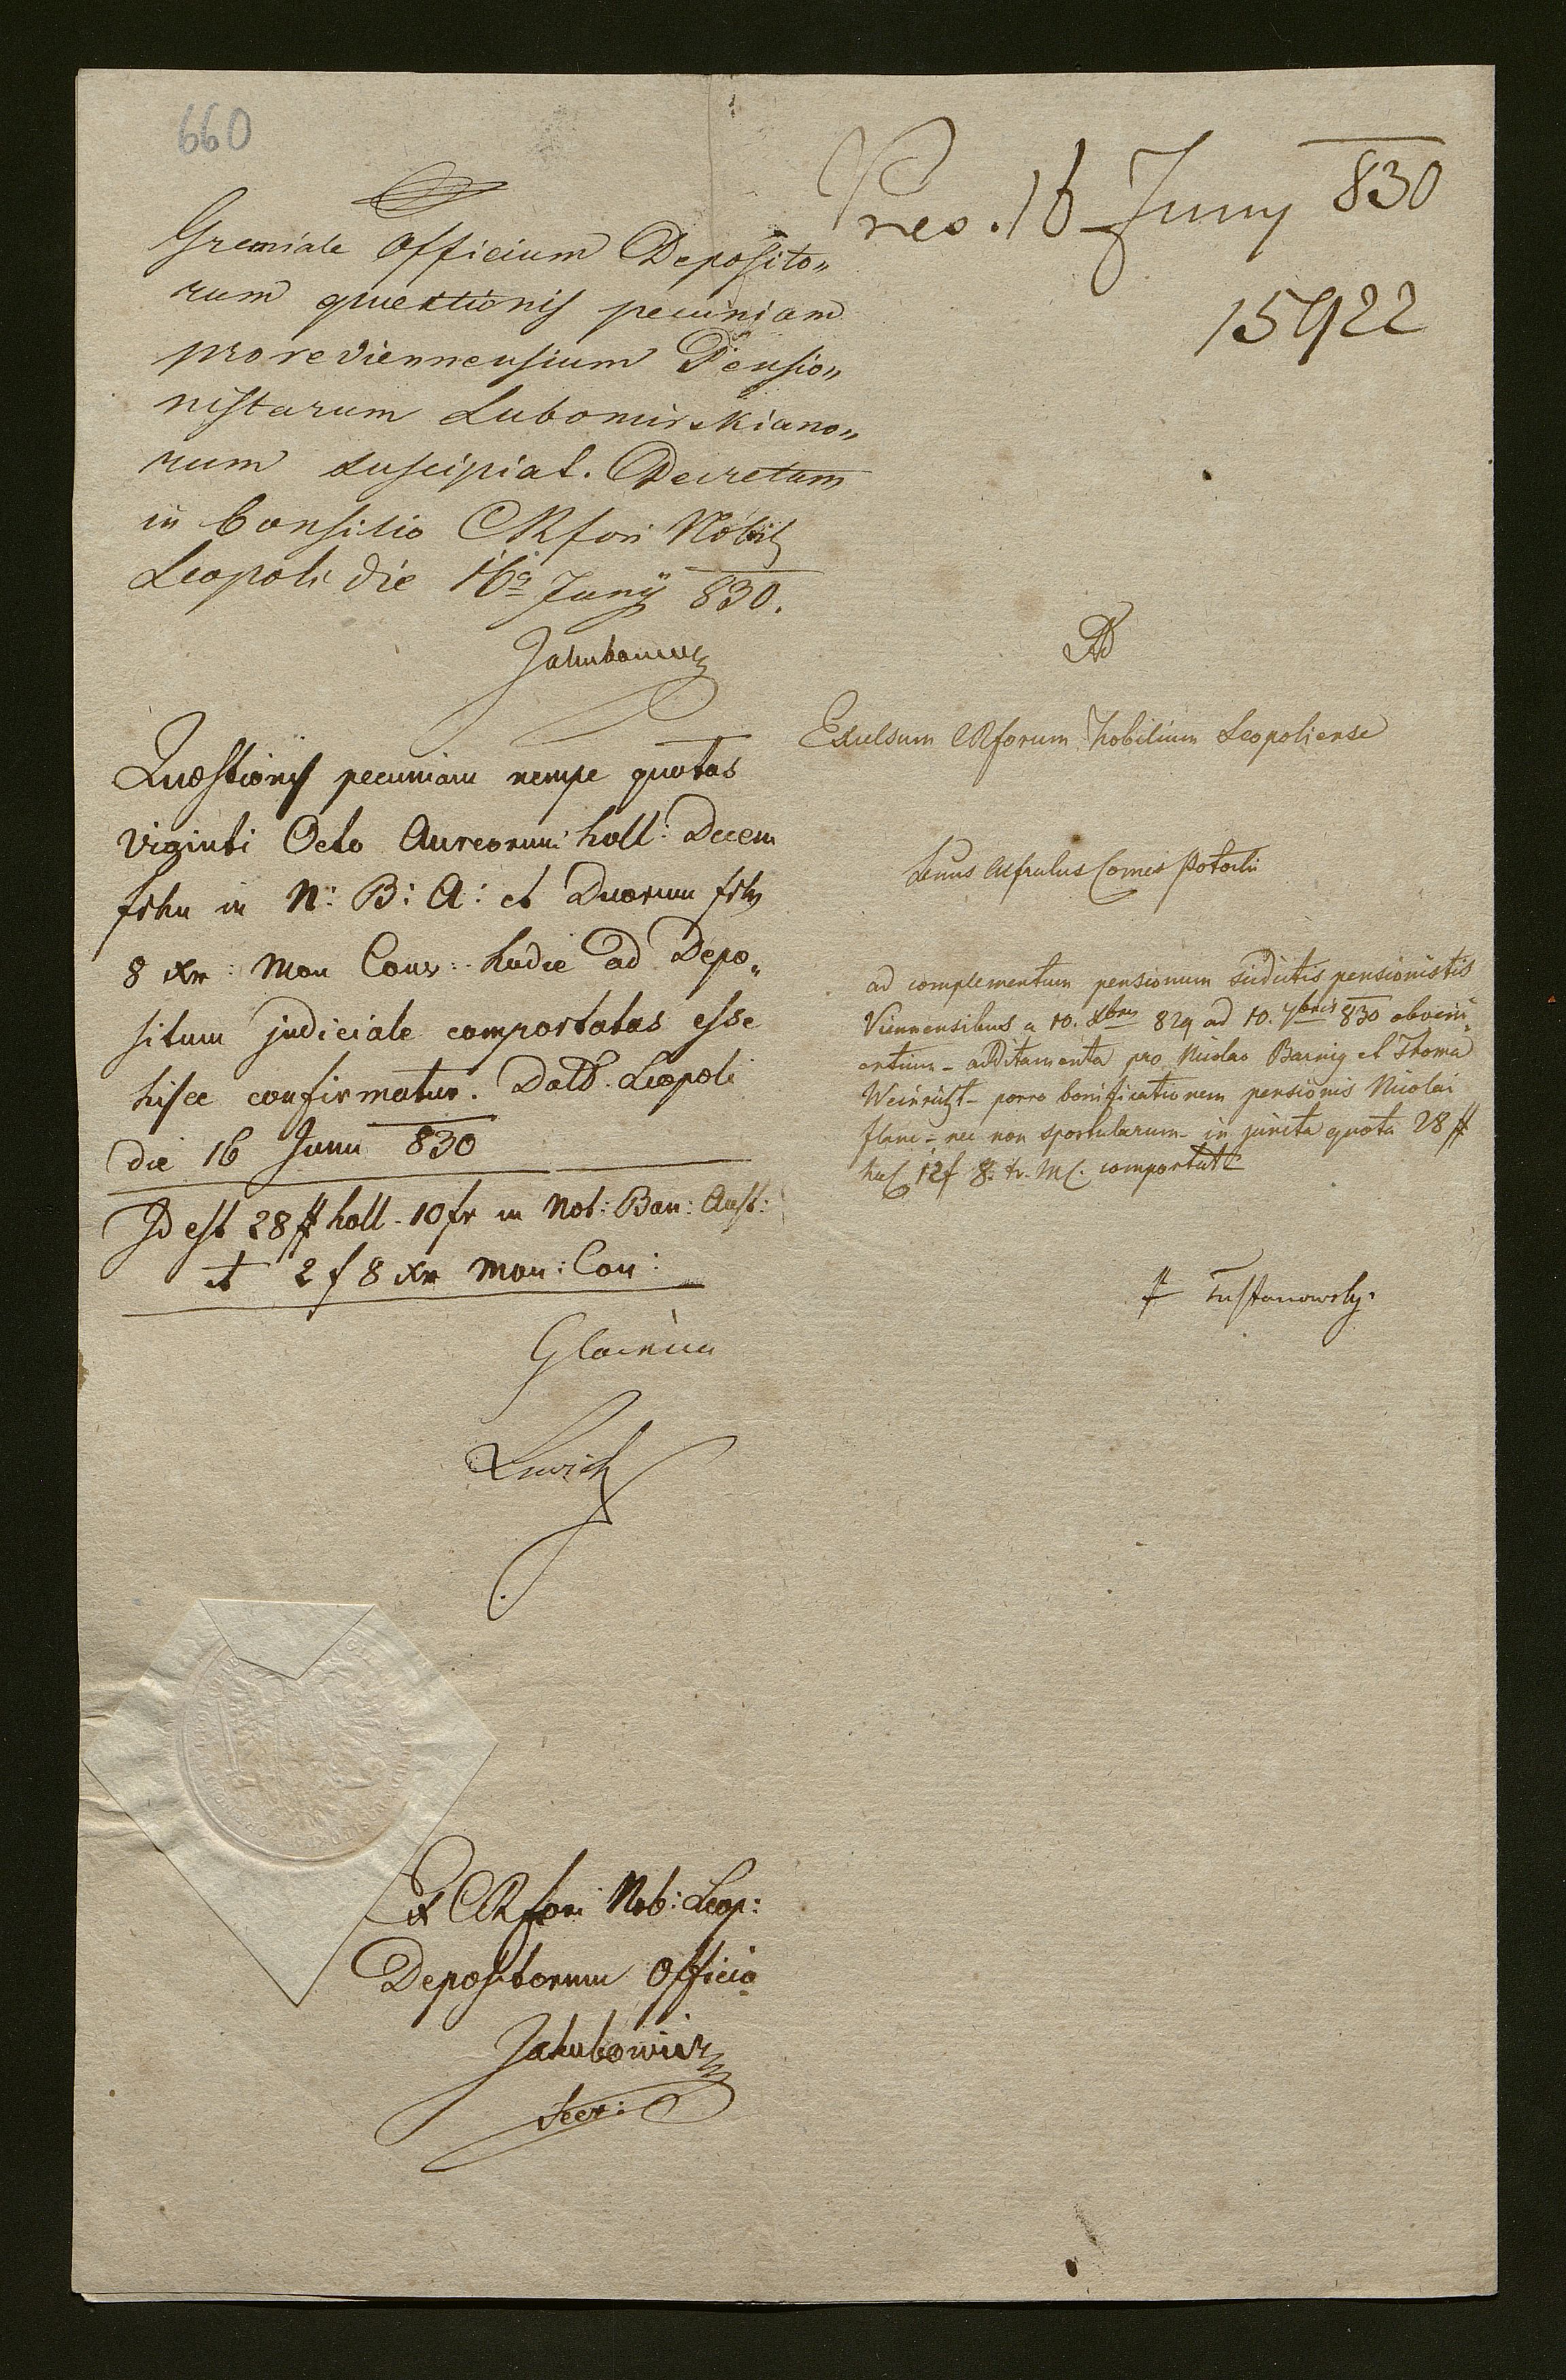 660
Gremiale Officium Deposito„
rum questionis pecuniam
pro re Viennensium Pensio„
nistarum Lubomirskiano„
rum suscipiat. Decretum
in Consilio CRfori Nobil
Leopoli die 16a Junÿ 830.
Jakubowicz
Quæstionis pecuniam nempe quotas
Viginti Octo Aureorum holl: Decem
in N: B: A: et Duorum
8 xr: Mon Conv: hodie ad Depo„
situm judiciale comportatas esse
hisce confirmatur. Datt. Leopoli
die 16 Junii 830
Id est 28 ## holl. 10 fr in Not: Ban: Aust:
et 2 f 8 xr Mon: Con:
Ex CRfori Nob: Leop:
Depositorum Officio
Jakubowicz
Secr:
Pres. 16 Juny 830
15922
Ad
Excelsum CRforum Nobilium Leopoliense
Comes Potocki
ad complementum pensionum sudictis pensionistis
Viennensibus a 10. Xbris 829 ad 10. 7bris 830 obveni„
entium - additamenta pro Nicolao Barnig et Thoma
porro bonificationem pensionis Nicolai
nec non sportularum in juncta quota 28 ##
12f 8 xr. MC. comportat
Tustanowsky.